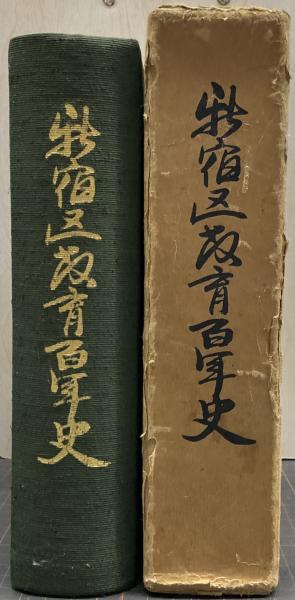 新宿区教育百年史
新宿区教育百年史